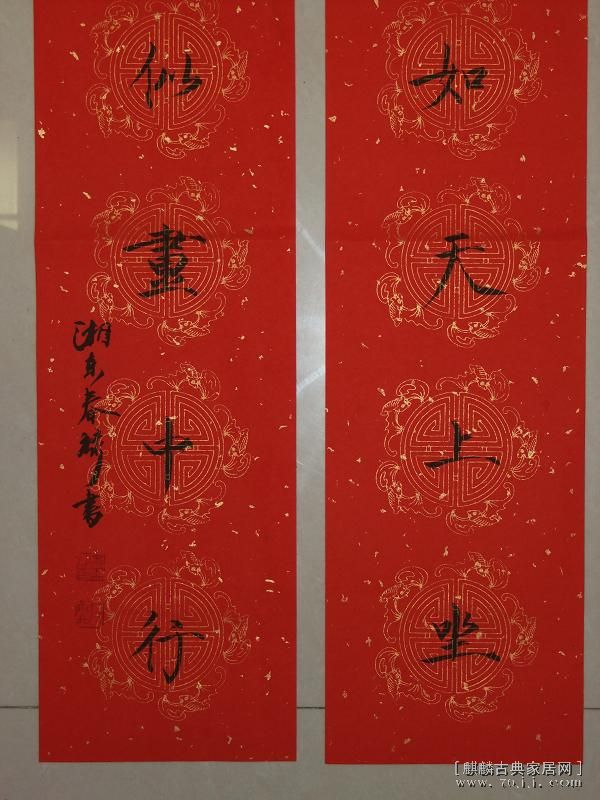 如天上坐
似畫中行
湘東春
書
[麒麟古典家居网]
www.7qjj.com